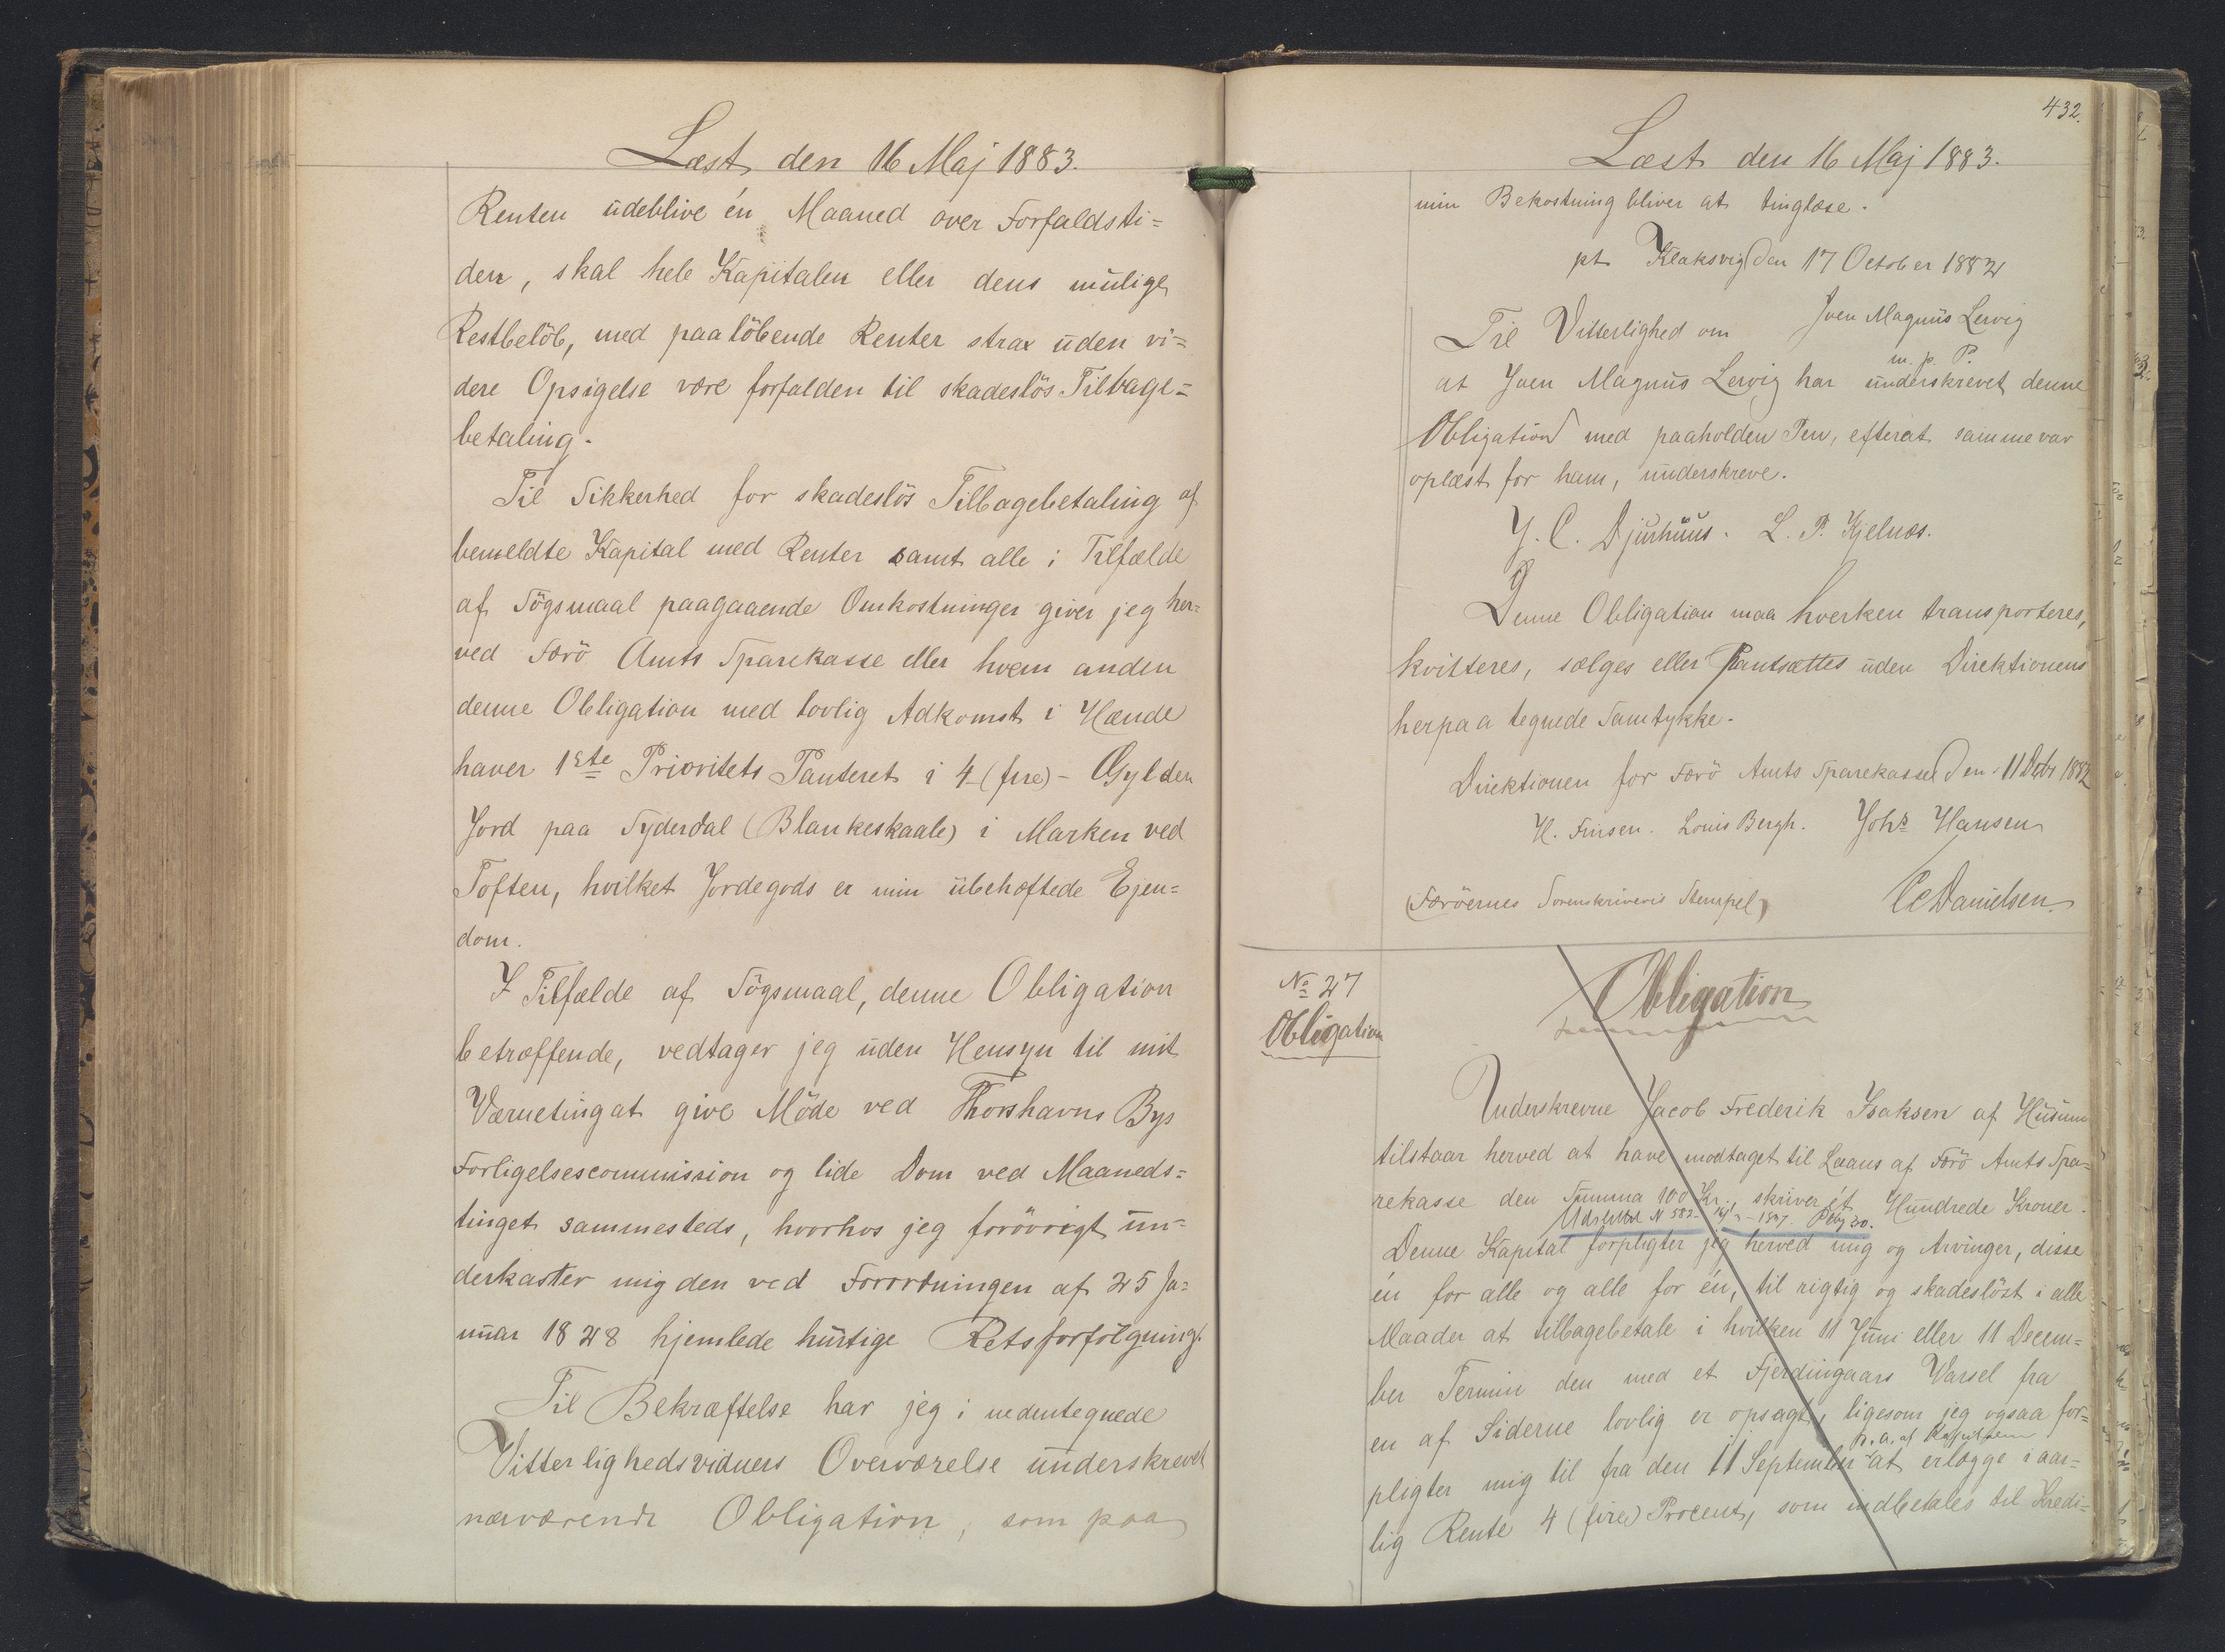 Læst den 16 Maj 1883.
Renten udeblive én Maaned over Forfaldsti=
den, skal hele Kapitalen eller dens mulige
Restbelöb, med paalöbende Renter strax uden vi=
dere Opsigelse være forfalden til skadeslös Tilbage=
betaling.
Til Sikkerhed for skadeslös Tilbagebetaling af
bemeldte Kapital med Renter samt alle i Tilfælde
af Sögsmaal paagaaende Omkostninger giver jeg her=
ved Færö Amts Sparekasse eller hvem anden
denne Obligation med lovlig Adkomst i Hænde
haver 1ste Prioritets Panteret i 4 (fire) - Gylden
Jord paa Syderdal (Blankeskaale) i Marken ved
Toften, hvilket Jordegods er min übehæftede Ejen=
dom.
I Tilfælde af Sögsmaal, denne Obligation
betræffende, vedtager jeg uden Hensyn til mit
Værneting at give Möde ved Thorshavns Bys
Forligelsescommission og lide Dom ved Maaneds=
tinget sammesteds, hvorhos jeg forövrigt un=
derkaster mig den ved Forordningen af 25 Ja=
nuar 1828 hjemlede hurtige Retsforfölgning.
Til Bekræftelse har jeg i nedentegnede
Vitterlighedsvidners Overværelse underskrevet
nærværende Obligation, som paa
432.
Læst den 16 Maj 1883.
min Bekostning bliver at tinglæse.
pt Klaksvig den 17 October 1882
Joen Magnus Lervig
m. p. P.
Til Vitterlighed om
at Joen Magnus Lervig har underskrevet denne
Obligation med paaholden Pen, efterat samme var
oplæst for ham, underskreve.
J. C. Djurhuus. L. P. Kjelnæs.
Denne Obligation maa hverken transporteres,
kvitteres, sælges eller Pantsættes uden Direktionens
herpaa tegnede Samtykke.
Direktionen for Færö Amts Sparekasse den 11 Decbr 1882
H. Finsen. Louis Bergh. Johs Hansen
(Færöernes Sorenskriveris Stempel)
CCDanielsen.
No 27
Obligation
Obligation
Underskrevne Jacob Frederik Isaksen af Husum
tilstaar herved at have modtaget til Laans af Færö Amts Spa=
rekasse den Summa 100 Kr., skriver ét Hundrede Kroner.
Udslettet N 582
Denne Kapital forpligter jeg herved mig og Arvinger, disse
én for alle og alle for én, til rigtig og skadeslöst i alle
Maader at tilbagebetale i hvilken 11 Juni eller 11 Decem=
ber Termin den med et Fjerdingaars Varsel fra
en af Siderne lovlig er opsagt, ligesom jeg ogsaa for=
p. a. af Kapitalen
pligter mig til fra den 11 September at erlægge i aar=
lig Rente 4 (fire) Procent, som indbetales til Kredi=